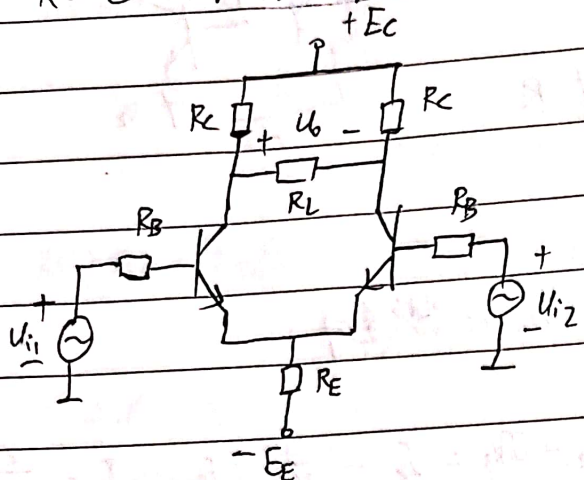 + Ec
Rc
Rc
+ Uo -
RL
RB
RB
+
Ui1
-
+
Ui2
-
RE
- EE